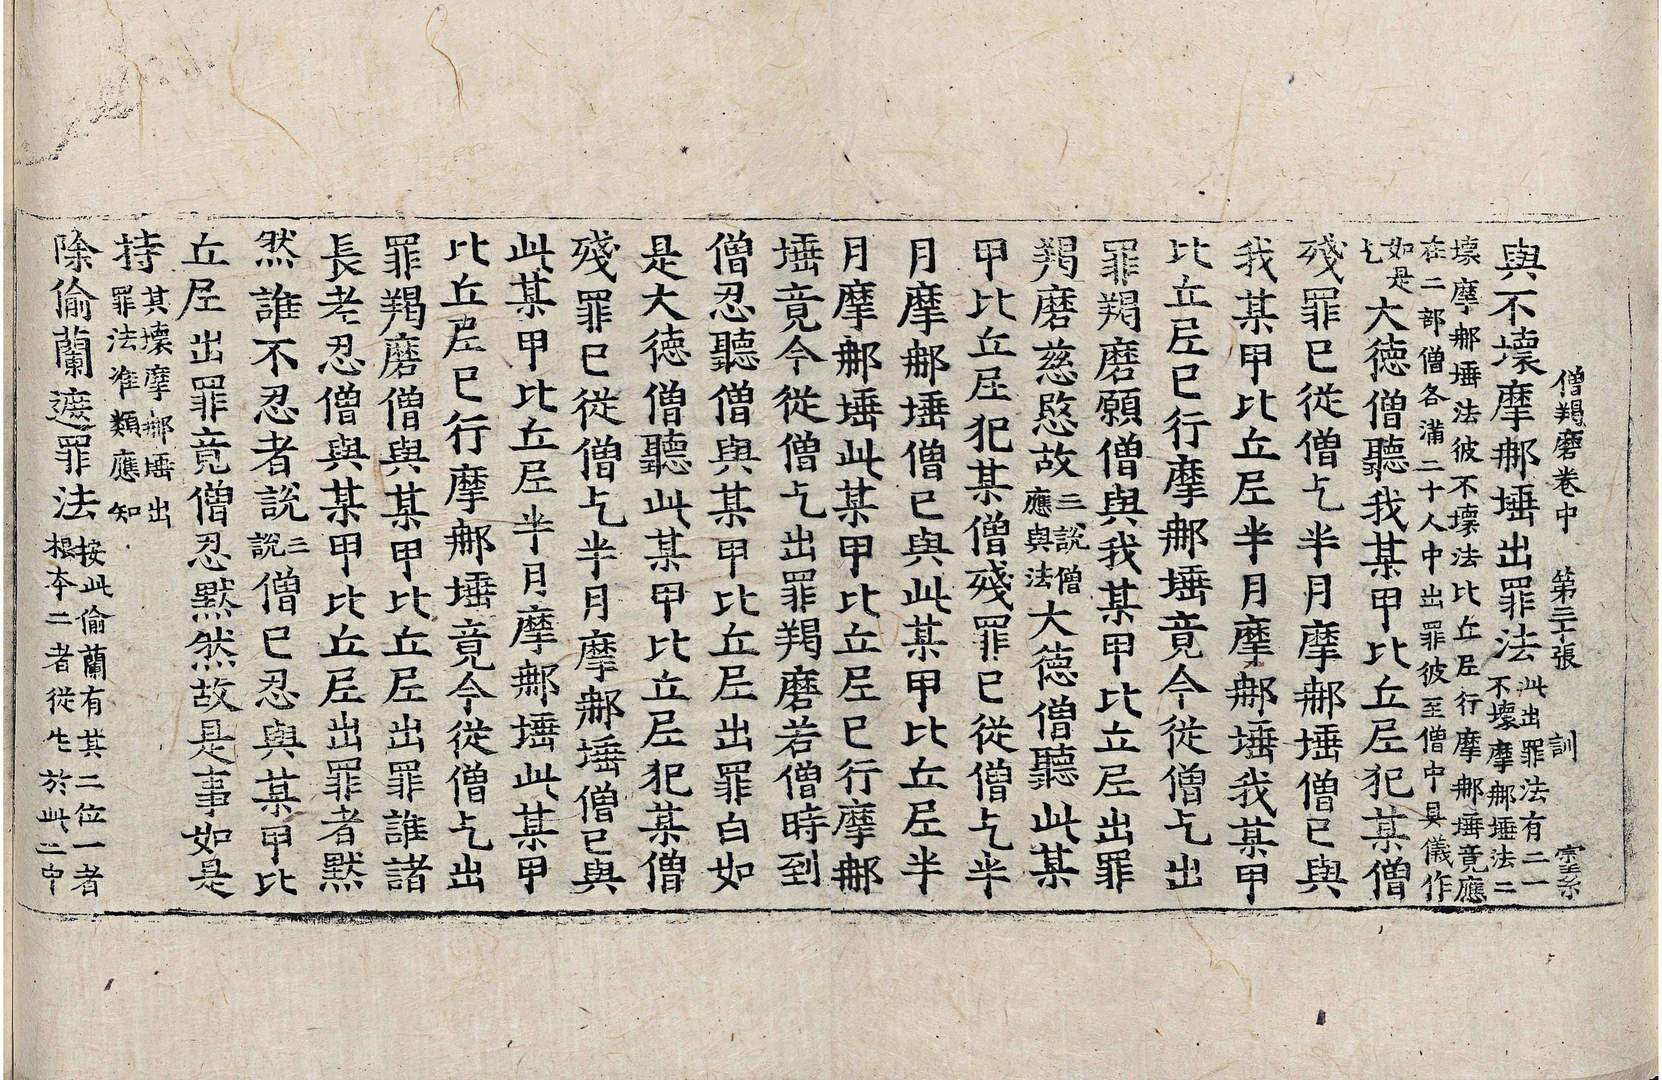 僧羯磨卷中　第三十張　訓
與不壞摩那埵出罪法此出罪法有二一不壞摩那埵法二
壞摩那埵法彼不壞法比丘尼行摩那埵竟應
在二部僧各滿二十人中出罪彼至僧中具儀作
如是乞大德僧聽我某甲比丘尼犯某僧
殘罪已從僧乞半月摩那埵僧已與
我某甲比丘尼半月摩那埵我某甲
比丘尼已行摩那埵竟今從僧乞出
罪羯磨願僧與我某甲比丘尼出罪
羯磨慈愍故三說僧應與法大德僧聽此某
甲比丘尼犯某僧殘罪已從僧乞半
月摩那埵僧已與此某甲比丘尼半
月摩那埵此某甲比丘尼已行摩那
埵竟今從僧乞出罪羯磨若僧時到
僧忍聽僧與某甲比丘尼出罪白如
是大德僧聽此某甲比丘尼犯某僧
殘罪已從僧乞半月摩那埵僧已與
此某甲比丘尼半月摩那埵此某甲
比丘尼已行摩那埵竟今從僧乞出
罪羯磨僧與某甲比丘尼出罪誰諸
長老忍僧與某甲比丘尼出罪者默
然誰不忍者說三說僧已忍與某甲比
丘尼出罪竟僧忍默然故是事如是
持其壞摩那埵出罪法准類應知
除偷蘭遮罪法按此偷蘭有其二位一者根本二者從生於此二中